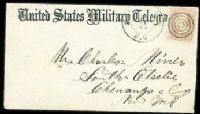 United States Military Telegra
Mr. Charles Miner
South Otselic
Chenango Co
New York